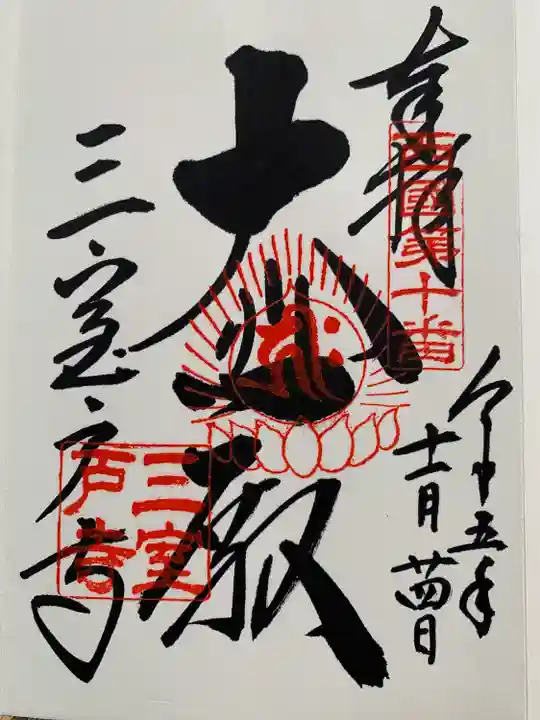 奉拝
西國第十番
令和五年
十一月廿四日
大悲殿
三室戸寺
三室
戸寺